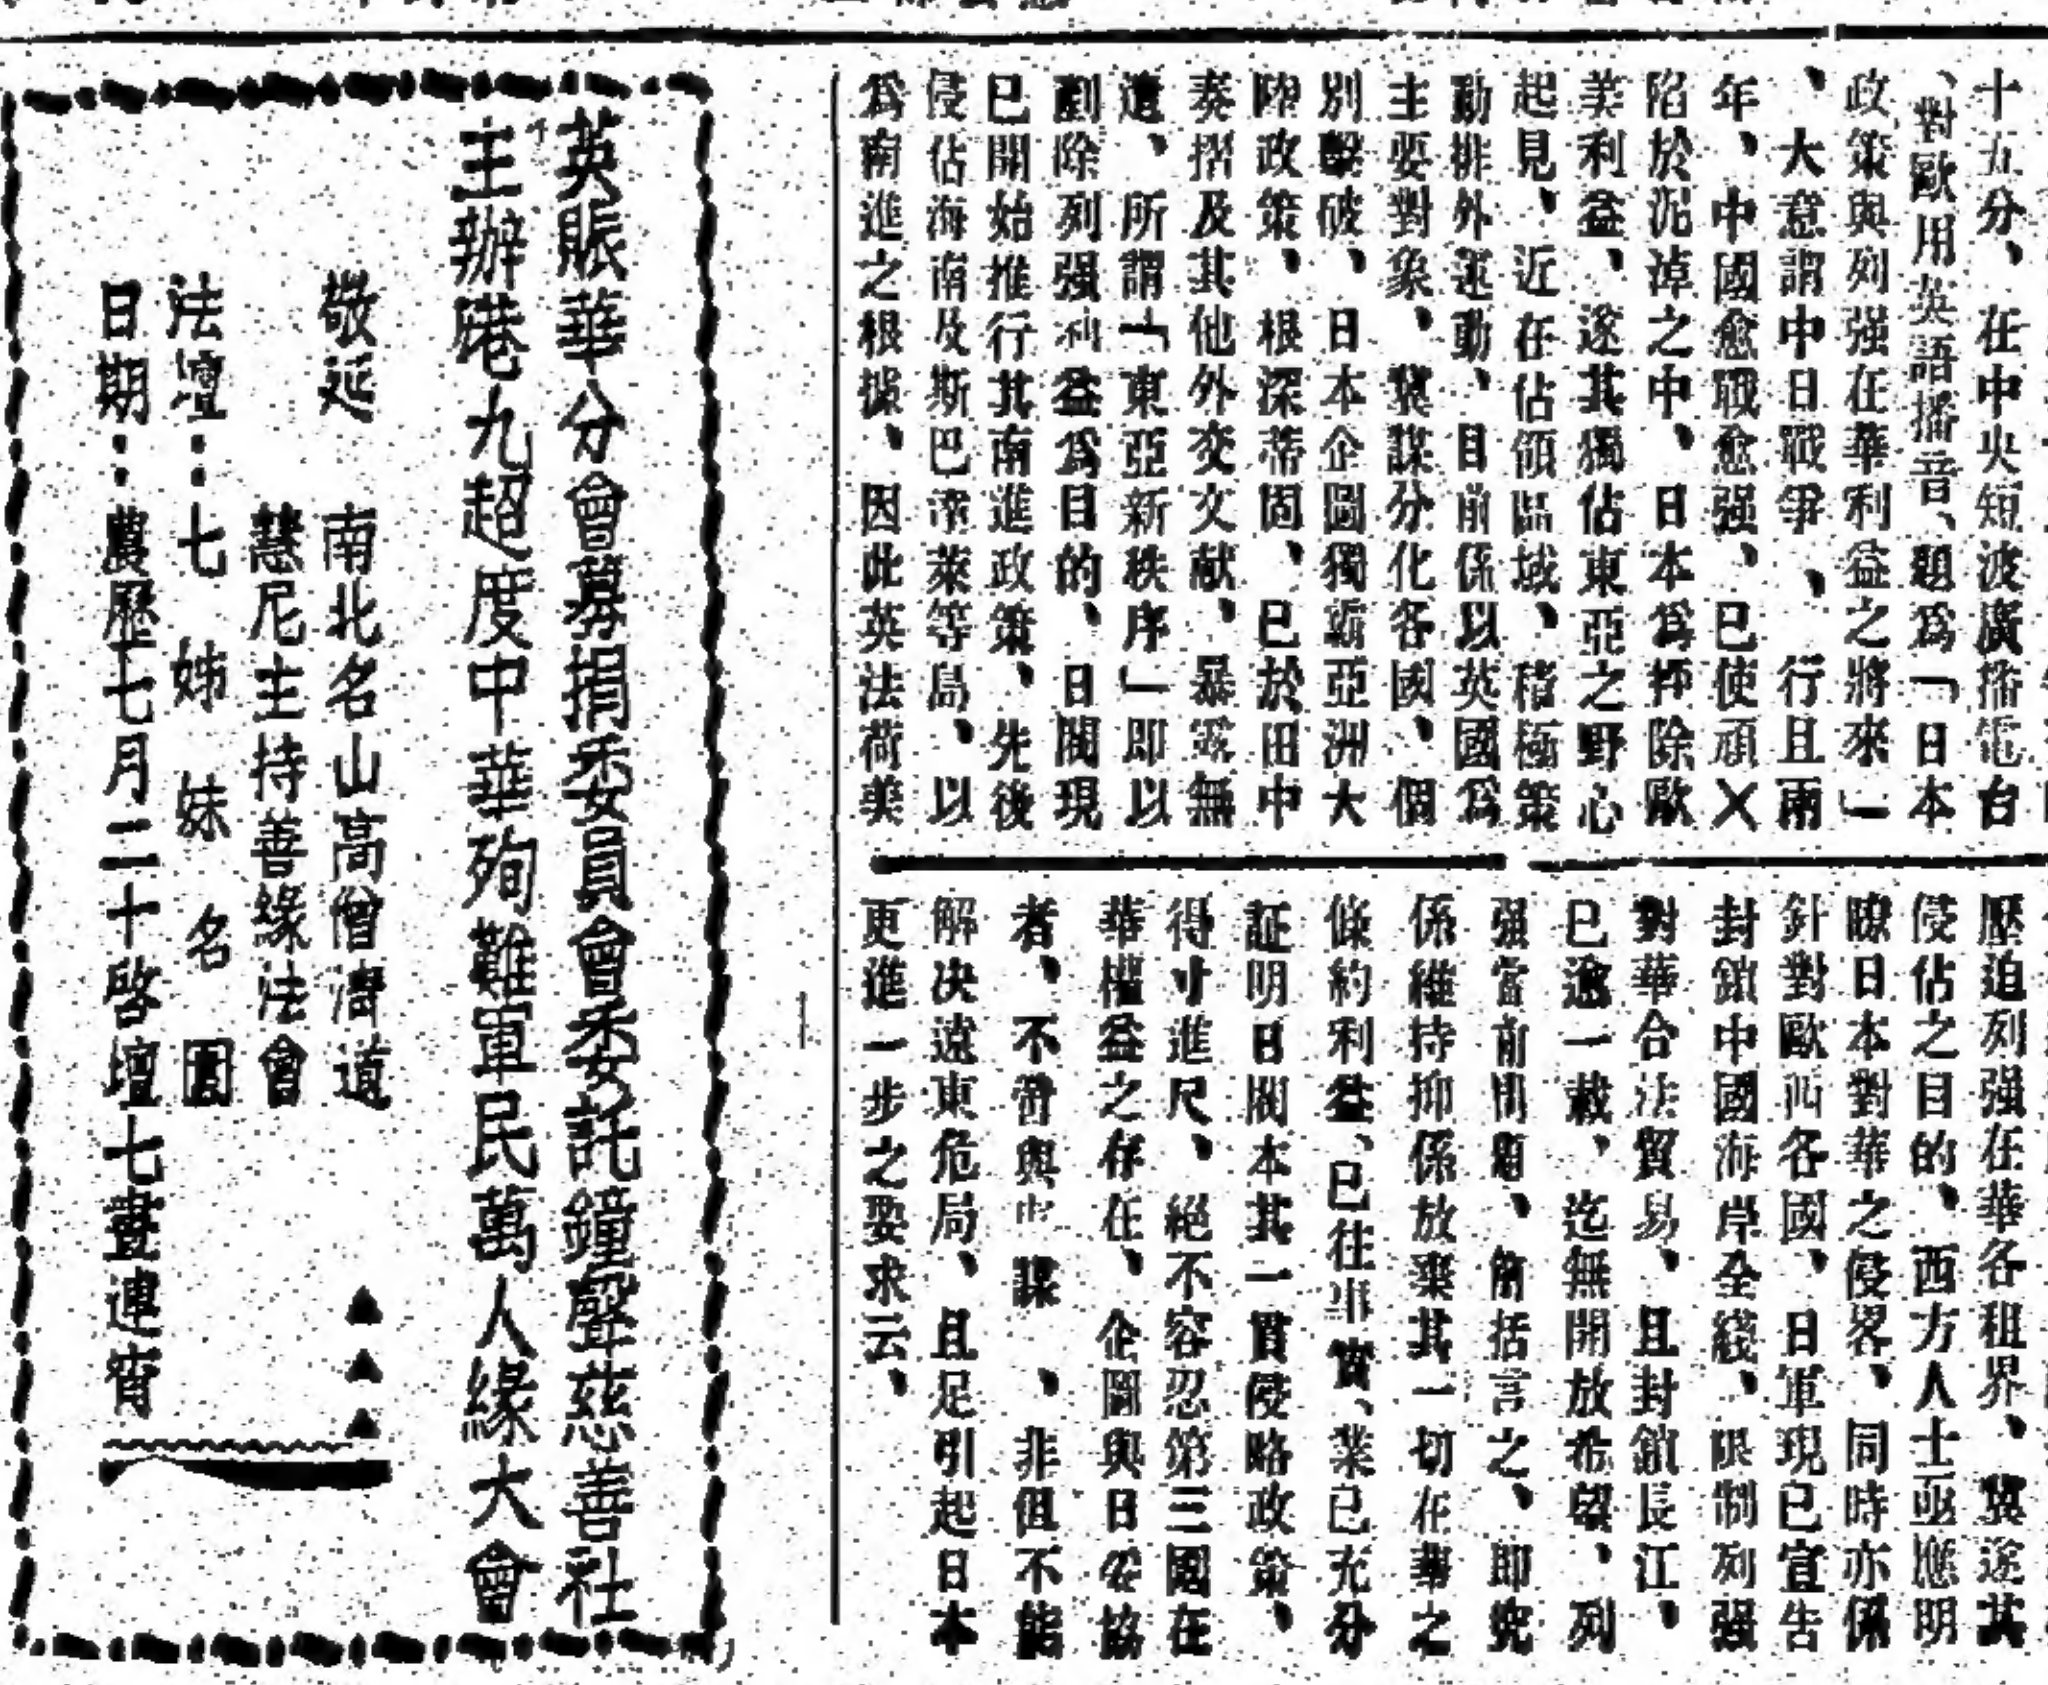 十五分、在中央短波廣播電台
、對歐用英語播音、題爲「日本
政策與列强在華利益之將來」
、大意謂中日戰爭、行且兩
年、中國愈戰愈强、已使頑X
陷於泥淖之中、日本爲抨除歐
美利益、遂其獨佔東亞之野心
起見、近在佔領區域、積極策
動排外運動、目前係以英國爲
主要對象、冀謀分化各國、個
別擊破、日本企圖獨霸亞洲大
陸政策、根深蒂固、已於田中
奏摺及其他外交文献、暴露無
遺、所謂「東亞新秩序」即以
剷除列强利益爲目的、日閥現
已開始推行其南進政策、先後
侵佔海南及斯巴萊等島、以
爲南進之根據、因此英法荷美
壓迫列强在華各租界、冀遂其
侵佔之目的、西方人士亟應明
瞭日本對華之侵畧、同時亦係
針對歐西各國、日軍現已宣告
封鎖中國海岸全綫、限制列强
對華合法貿易、且封鎖長江、
已逾一載、迄無開放希望、列
强當前問題、簡括言之、即究
係維持抑係放棄其一切在華之
條約利益、已往事實、業已充分
証明日閥本其一貫侵略政策、
得寸進尺、絕不容忍第三國在
華權益之存在、企圖與日妥協
者、不啻與虎謀、非但不能
解决遠東危局、且足引起日本
更進一步之要求云、
英賑華分會募捐委員會委託鐘聲慈善社
主辦港九超度中華殉難軍民萬人緣大會
敬延 南北名山高僧濟道
慧尼主持善緣法會
法壇：七姊妹名園
日期：農歷七月二十啓壇七晝連宵